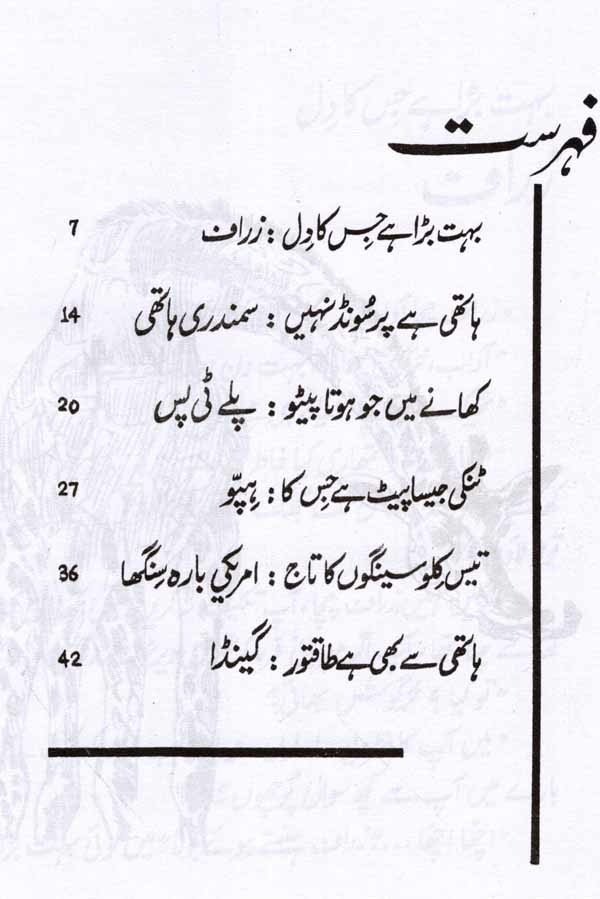 فہرست
بہت بڑا ہے جِس کا دِل : زراف 7
ہاتھی ہے پر سُونڈ نہیں : سمندری ہاتھی 14
کھانے میں جو ہوتا پیٹو : پلے ٹی پس 20
ٹنکی جیسا پیٹ ہے جِس کا : ہِپّو 27
تیس کِلو سینگوں کا تاج : امریکی بارہ سِنگھا 36
ہاتھی سے بھی ہے طاقتور : گینڈا 42